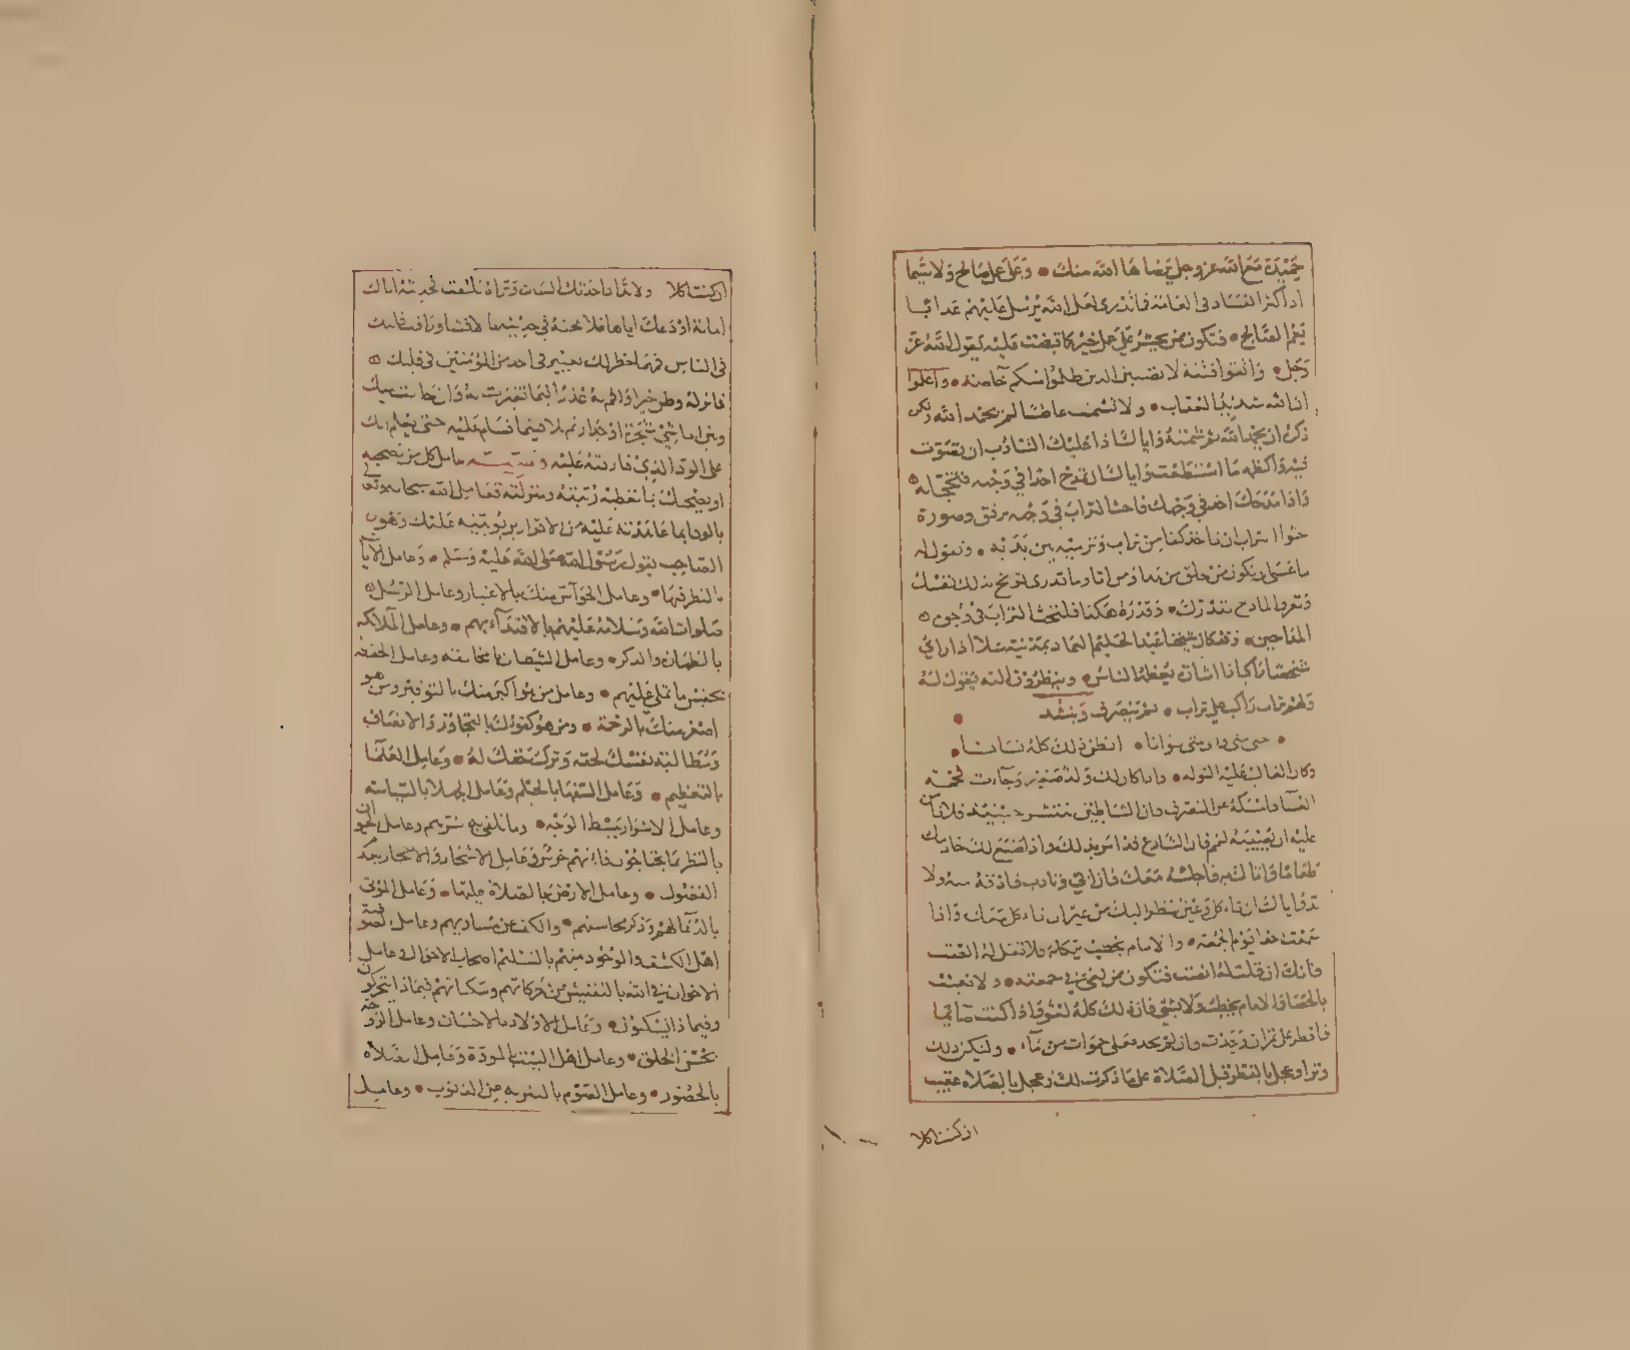 حميدة مع الله عز وجل يرضاها الله منك وعلى عمل صالح ولا سيما
اذا كثر الفساد في العامة فما تدري لعل الله يرسل عليهم عذابا
يعم الصالح فتكون ممن يحشر على عمل خير كما قبضت عليه يقول الله عز
وجل واتقوا فتنة لا تصيبن الذين ظلموا منكم خاصة واعلموا
ان الله شديد العقاب ولا تشمت عاطسا لم يحمد الله ولكن
ذكره ان يحمد الله ثم شمته واياك اذا عليك التثاؤب ان تصوت
فيه واكظمه ما استطعت واياك ان تمدح احدا في وجهه فتخجله
واذا مدحك احد في وجهك فاحث التراب في وجهه برفق وصورة
حثو التراب ان تاخذ كفا من تراب وترمي به بين يديه وتقول له
ما عسى ان يكون من خلق من هذا ومن انا وما قدري توبخ بذلك نفسك
وتعرف المادح بقدرك وقدره هكذا فلتحث التراب في وجوه
المداحين وقد كان شيخنا عبد الحليم بمدينة سلا اذا راى
شخصا راكبا ذا اشارة يعظمه الناس وينظرون اليه يقول له
ولهم تراب راكب على تراب ثم ينصرف وينشد
حتى متى والى متى تتوانا اتظن ذلك كله نسيانا
وكان الغالب عليه التوله واذا كان لك ولد صغير وجاءت فحمة
العشا فامسكه عن التصرف فان الشياطين تنتشر حينئذ فلا تامن
عليه ان يصيبه لمم فان الشارع قد امر بذلك واذا صنع لك خادمك
طعاما واتاك به فاجلسه معك فان ابى وتادب فاذقه منه ولا
بد واياك ان تاكل وعين تنظر اليك من غير ان ياكل معك واذا
سمعت لغا يوم الجمعة والامام يخطب يتكلم فلا تقل له انصت
فانك ان قلت له انصت فتكون ممن لغى في جمعته ولا تعبث
بالحصا والامام يخطب ولا بشي فان ذلك كله لغو واذا كنت صائما
فافطر على تمر ان وجدت وان لم تجد فعلى حسوات من ماء وليكن ذلك
وترا وعجل بالفطر قبل الصلاة على ما ذكرت لك وعجل بالصلاة عقيب
اذ كنت اكلا
اذ كنت اكلا ولا بد اذا حدثك انسان وتراه يلتفت فحديثه اياك
امانة اودعك اياها فلا تخنه في حديثها
في الناس فمهما خطر لك تغيير في احد من المؤمنين في قلبك
فازله وظن خيرا واقم له عذرا
وبين ما شي شجرة او جدار ثم تلاقيتما فسلم عليه حتى يعلم انك
على الود الذي فارقته عليه وصية عامل كل من تصحبه
او يصحبك بما تعطيه رتبته ومنزلته فعامل الله سبحانه وتعالى
بالوفا بما عاهدته عليه من الاقرار بربوبيته عليك وهو
الصاحب بقول رسول الله صلى الله عليه وسلم وعامل الآيات
بالنظر فيها وعامل الحواس منك بالاعتبار وعامل الرسل
صلوات الله وسلامه عليهم بالاقتداء بهم وعامل الملائكة
بالطهارة والذكر وعامل الشيطان بالمخالفة وعامل الحفظة
بحسن ما تملي عليهم وعامل من هو اكبر منك بالتوقير ومن هو
اصغر منك بالرحمة ومن هو كفؤ لك بالتجاوز والانصاف
ومطالبة نفسك لحقه وترك حقك له وعامل العلما
بالتعظيم وعامل السفها بالحلم وعامل الجهلا بالسياسة
وعامل الاشرار ببسط الوجه وما تتقي به شرهم وعامل الحيوان
بالنظر فيما يحتاجون فانهم خرس وعامل الاشجار والاحجار بعدم
الفضول وعامل الارض بالصلاة عليها وعامل الموتى
بالدعا لهم وذكر محاسنهم والكف عن مساويهم وعامل الصوفية
اهل الكشف والوجود منهم بالتسليم اصحاب الاحوال وعامل
الاخوان في الله بالتفتيش عن حركاتهم وسكناتهم فيما ذا يتحركون
وفيما ذا يسكنون وعامل الاولاد بالاحسان وعامل الزوجة
بحسن الخلق وعامل اهل البيت بالمودة وعامل الصلاة
بالحضور وعامل الصوم بالتنزيه عن الذنوب وعامل